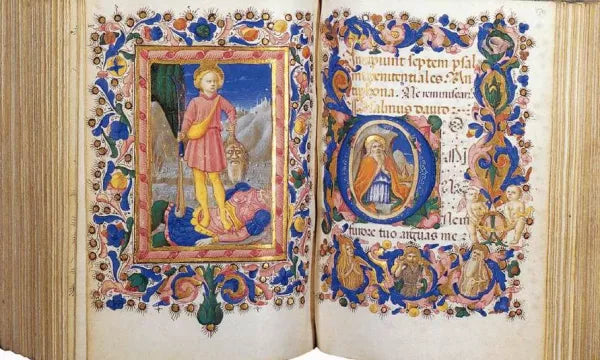 Incipiunt septem psal
mi penitentiales. An
phona. Ne reminiscar
psalmus dauid:
D
furore tuo arguas me: